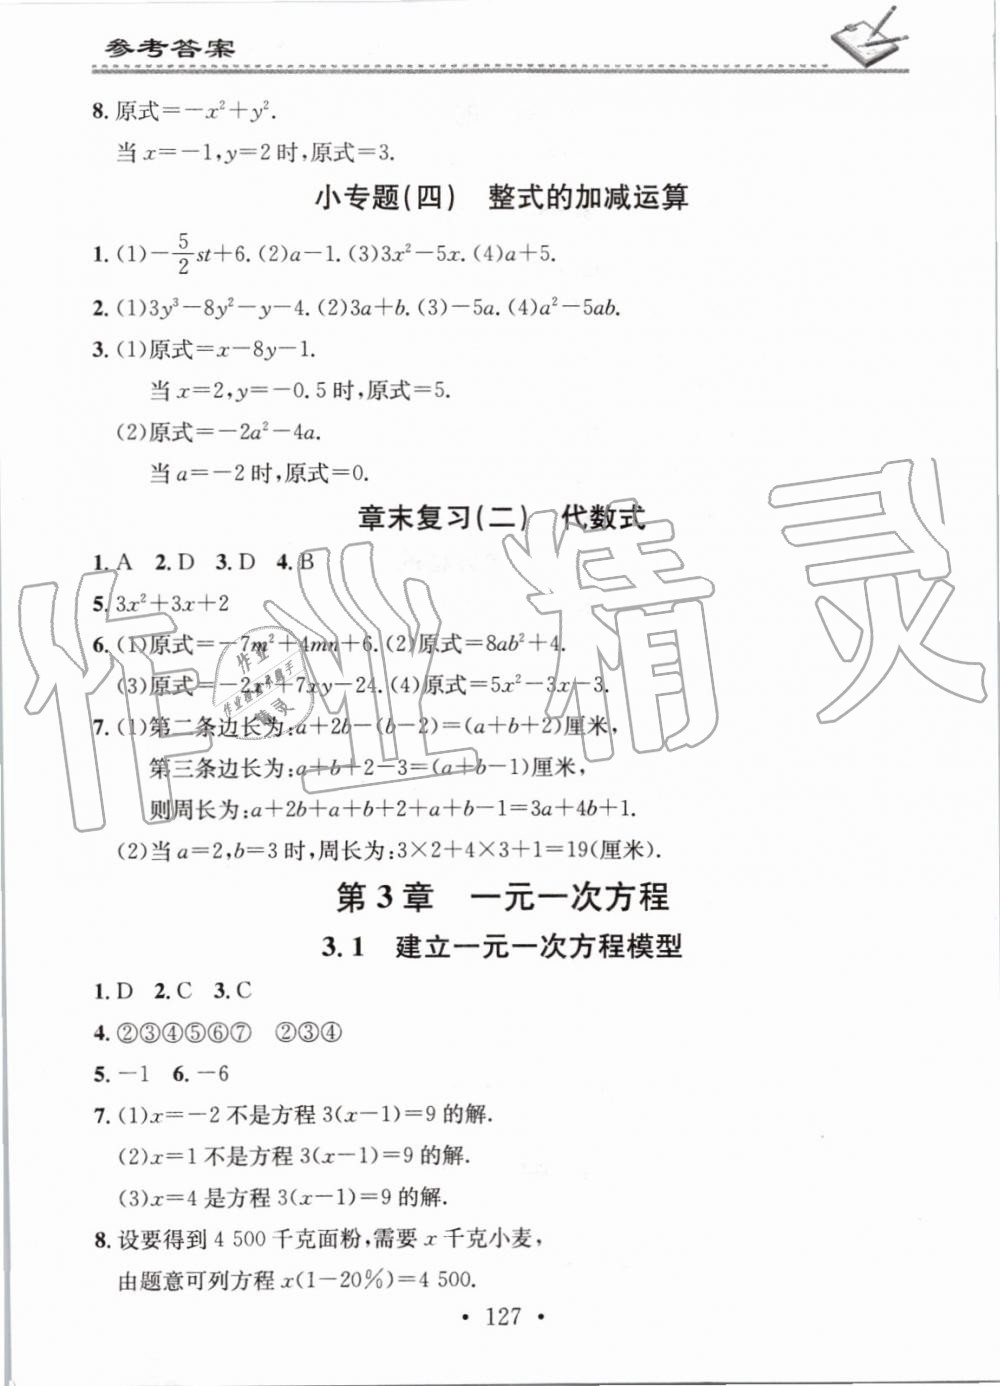 参考答案
8. 原式=-x²+y².
当 x=-1,y=2 时,原式=3.
小专题(四) 整式的加减运算
1. (1)-5/2 st+6. (2)a-1. (3)3x²-5x. (4)a+5.
2. (1)3y³-8y²-y-4. (2)3a+b. (3)-5a. (4)a²-5ab.
3. (1)原式=x-8y-1.
当 x=2,y=-0.5 时,原式=5.
(2)原式=-2a²-4a.
当 a=-2 时,原式=0.
章末复习(二) 代数式
1. A 2. D 3. D 4. B
5. 3x²+3x+2
6. (1)原式=-7m²+4mn+6. (2)原式=8ab²+4.
(3)原式=-2x²+7xy-24. (4)原式=5x²-3x-3.
7. (1)第二条边长为:a+2b-(b-2)=(a+b+2)厘米,
第三条边长为:a+b+2-3=(a+b-1)厘米,
则周长为:a+2b+a+b+2+a+b-1=3a+4b+1.
(2)当 a=2,b=3 时,周长为:3×2+4×3+1=19(厘米).
第 3 章 一元一次方程
3.1 建立一元一次方程模型
1. D 2. C 3. C
4. ②③④⑤⑥⑦ ②③④
5. -1 6. -6
7. (1)x=-2 不是方程 3(x-1)=9 的解.
(2)x=1 不是方程 3(x-1)=9 的解.
(3)x=4 是方程 3(x-1)=9 的解.
8. 设要得到 4 500 千克面粉,需要 x 千克小麦,
由题意可列方程 x(1-20%)=4 500.
· 127 ·
作业精灵